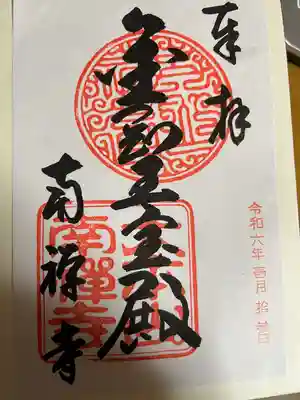 奉拝
金剛王宝殿
南禅寺
令和六年
南禅寺